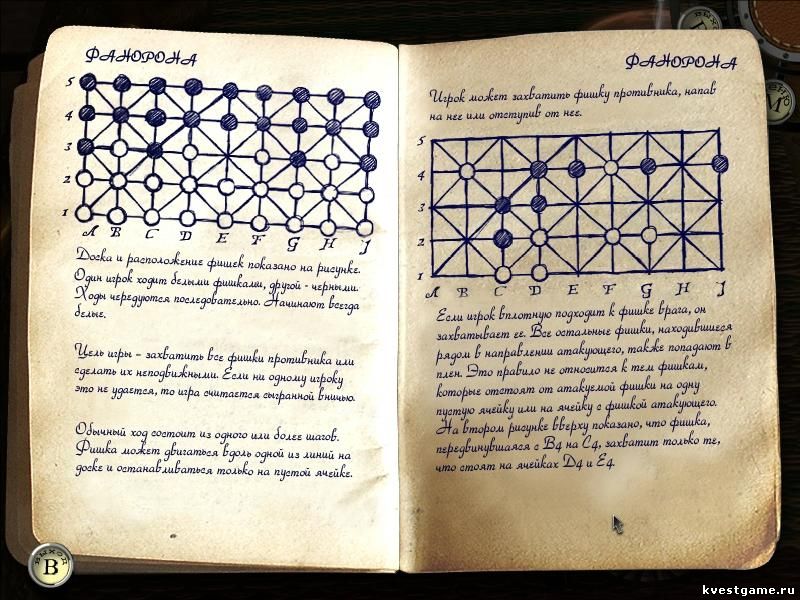 ФАНОРОНА
5
4
3
2
1
A B C D E F G H J
Доска и расположение фишек показано на рисунке.
Один игрок ходит белыми фишками, другой - черными.
Ходы чередуются последовательно. Начинают всегда
белые.
Цель игры – захватить все фишки противника или
сделать их неподвижными. Если ни одному игроку
это не удается, то игра считается сыгранной вничью.
Обычный ход состоит из одного или более шагов.
Фишка может двигаться вдоль одной из линий на
доске и останавливаться только на пустой ячейке.
ВЫХОД
В
ФАНОРОНА
Игрок может захватить фишку противника, напав
на нее или отступив от нее.
5
4
3
2
1
A B C D E F G H J
Если игрок вплотную подходит к фишке врага, он
захватывает ее. Все остальные фишки, находившиеся
рядом в направлении атакующего, также попадают в
плен. Это правило не относится к тем фишкам,
которые отстоят от атакуемой фишки на одну
пустую ячейку или на ячейку с фишкой атакующего.
На втором рисунке вверху показано, что фишка,
передвинувшаяся с B4 на C4, захватит только те,
что стоят на ячейках D4 и E4.
М
kvestgame.ru